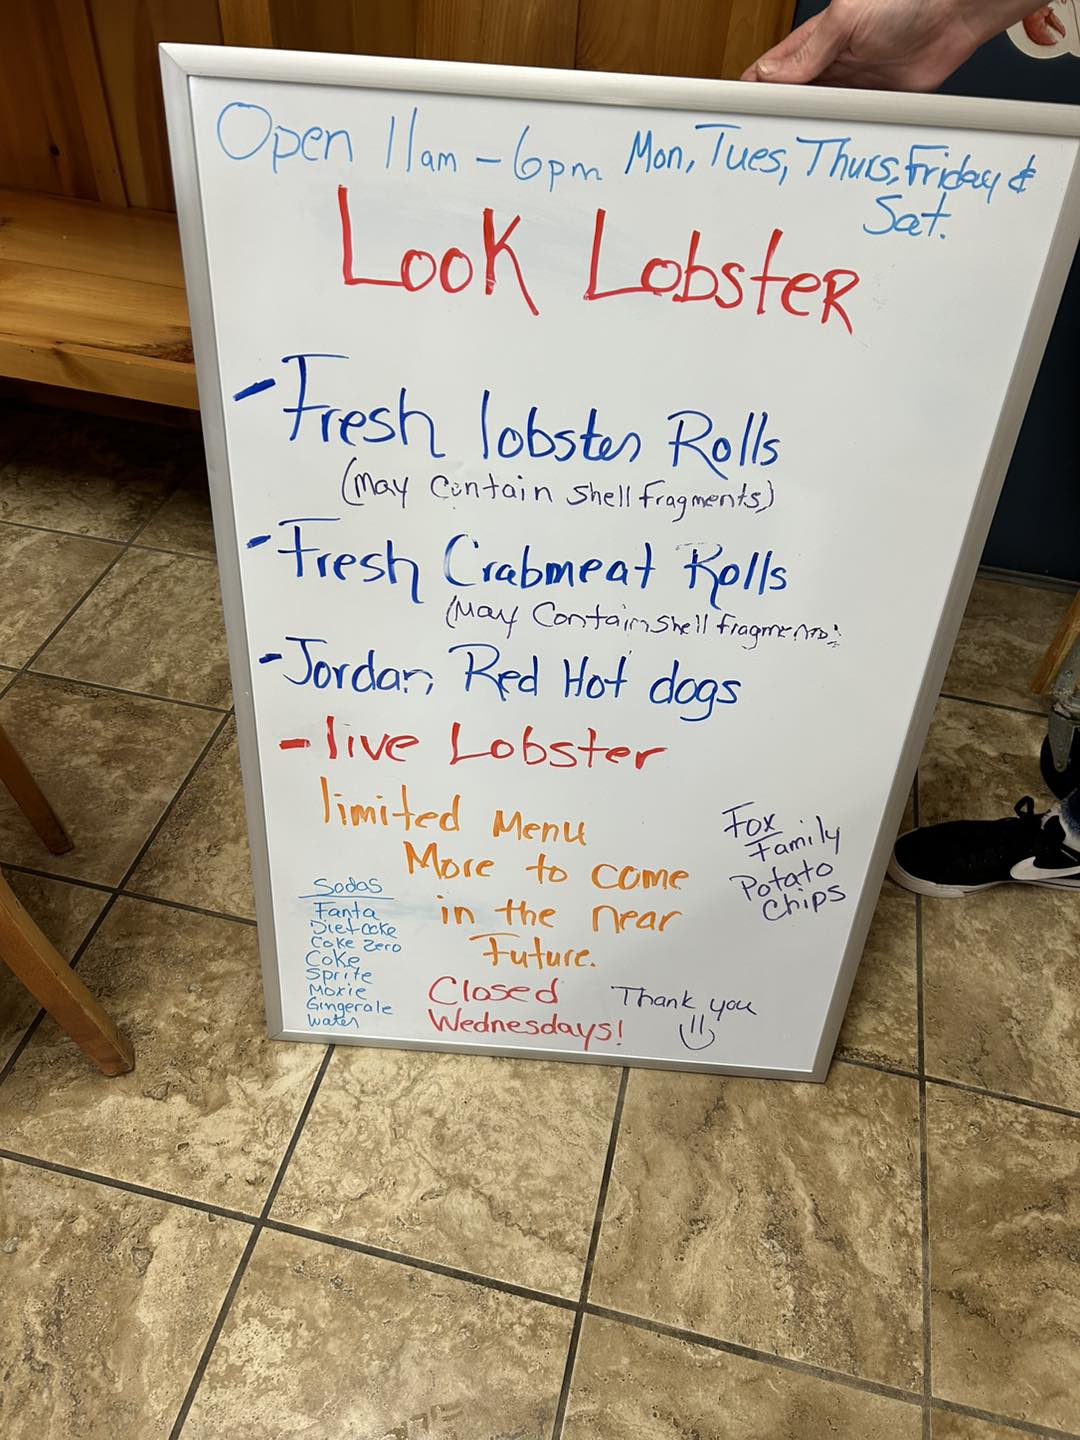 Open 11am - 6pm Mon, Tues, Thurs, Friday &
Sat.
Look Lobster
- Fresh lobster Rolls
(May Contain Shell fragments)
- Fresh Crabmeat Rolls
(May Contain Shell fragments)
- Jordan Red Hot dogs
- live Lobster
limited Menu
More to come
in the near
Future.
Fox
Family
Potato
Chips
Sodas
Fanta
Diet coke
Coke Zero
Coke
Sprite
Moxie
Gingerale
Water
Closed
Wednesdays!
Thank you